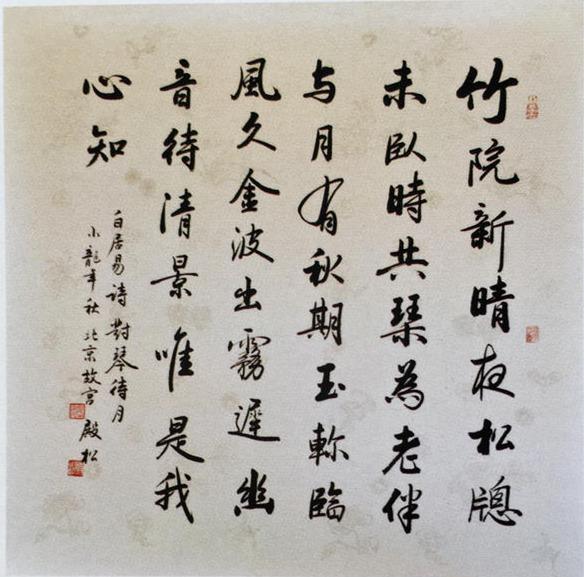 竹院新晴夜松牕
未臥時共琴為老伴
与月有秋期玉軫臨
風久金波出霧遲幽
音待清景唯是我
心知
白居易詩對琴待月
小龍年秋北京故宮殷松